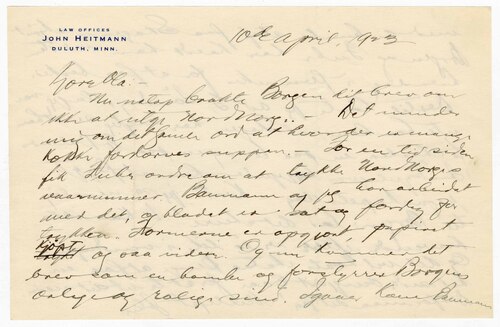 LAW OFFICES
JOHN HEITMANN
DULUTH, MINN.
10de April 1923
Kjære Ola. -
Nu netop bragte Borgen dit brev om
ikke at utgi Nord Norge. - Det minder
mig om det gamle ord at hvor der er mange
kokke fordærves suppen. - For en tid siden
fik ordre om at trykke Nord Norges
vaarnummer. Baumann og jeg har arbeidet
med det, og bladet er sat og færdig for
trykken. Formerne er opgjort, papiret
kjøpt og saa videre. Og nu kommer det
brev som en bombe og forstyrrer Borgens
ærlige og rolige sind. Igaar kom Baumann